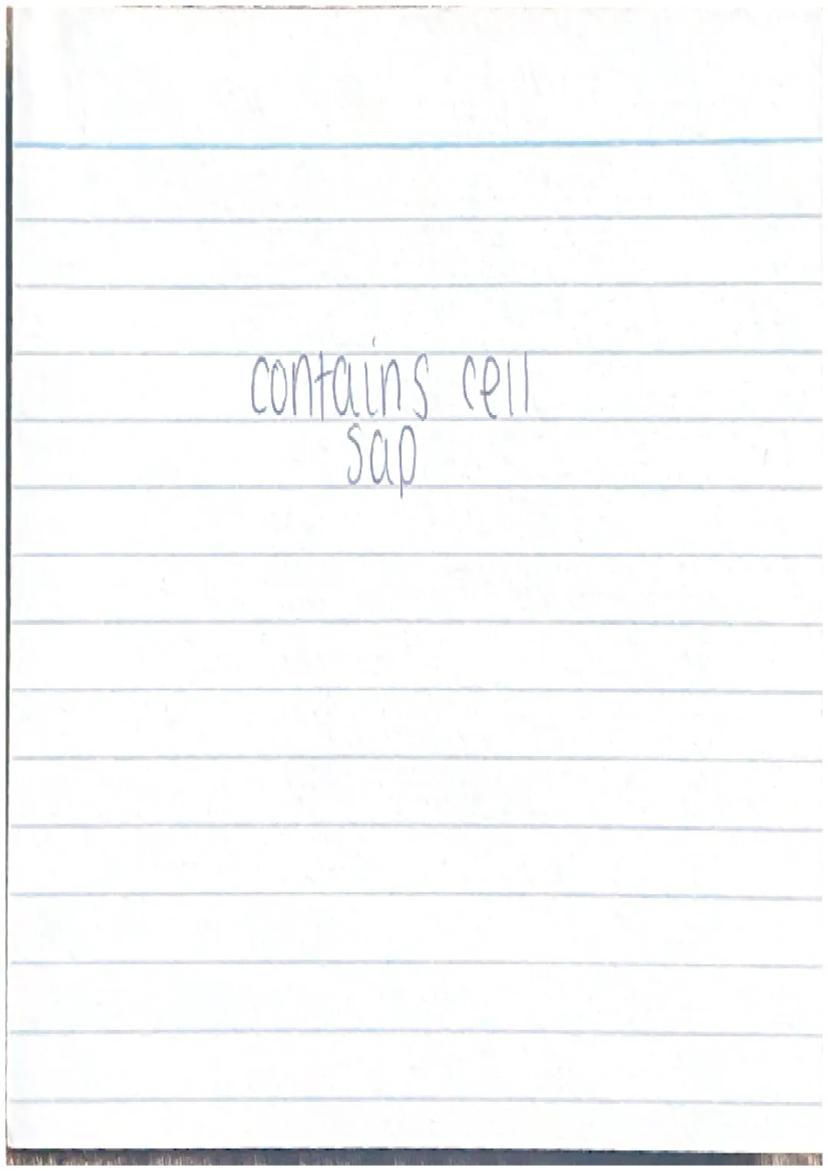 contains cell
sap